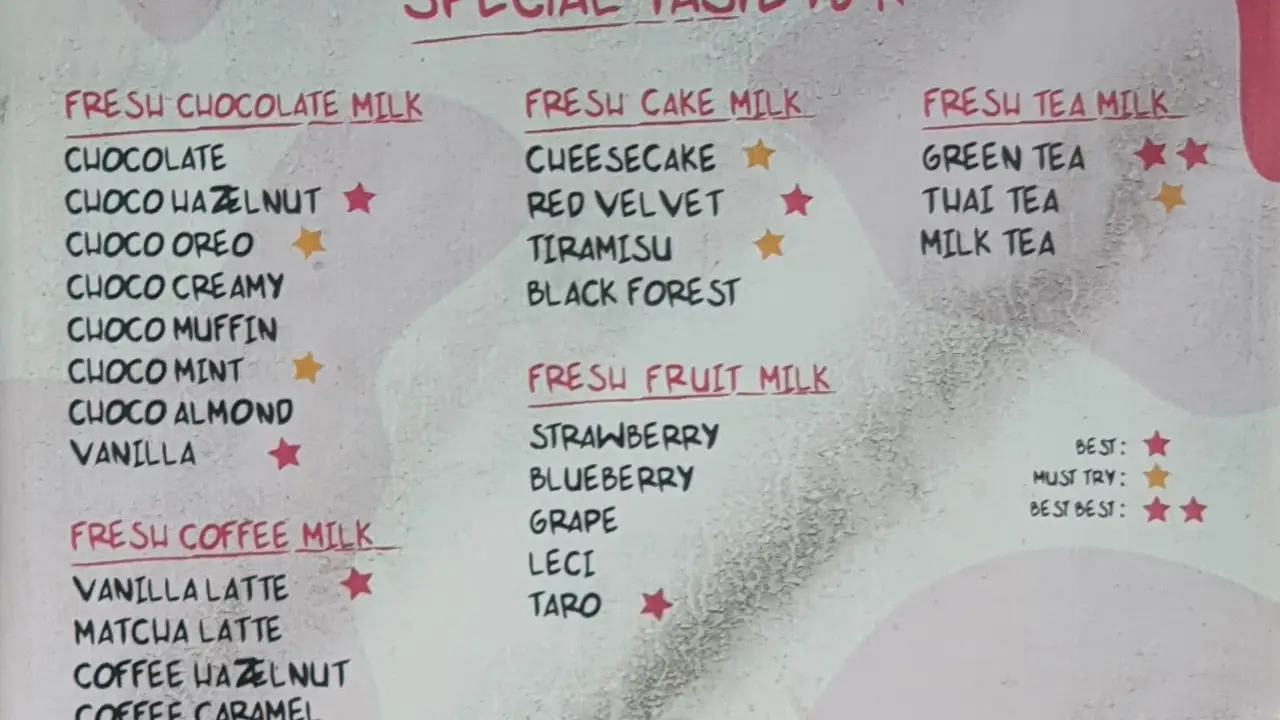 SPECIAL TASTE
FRESH CHOCOLATE MILK
CHOCOLATE
CHOCO HAZELNUT
CHOCO OREO
CHOCO CREAMY
CHOCO MUFFIN
CHOCO MINT
CHOCO ALMOND
VANILLA
FRESH COFFEE MILK
VANILLA LATTE
MATCHA LATTE
COFFEE HAZELNUT
COFFEE CARAMEL
FRESH CAKE MILK
CHEESECAKE
RED VELVET
TIRAMISU
BLACK FOREST
FRESH FRUIT MILK
STRAWBERRY
BLUEBERRY
GRAPE
LECI
TARO
FRESH TEA MILK
GREEN TEA
THAI TEA
MILK TEA
BEST:
MUST TRY:
BEST BEST: